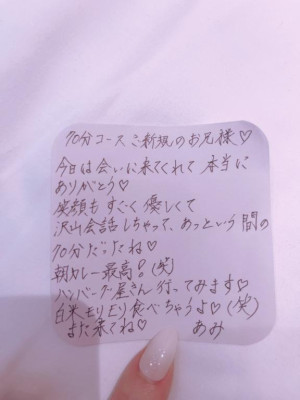 70分コースご新規のお兄様♡
今日は会いに来てくれて本当に
ありがとう♡
笑顔もすごく優しくて
沢山会話しちゃって、あっという間の
70分だったね♡
朝カレー最高!(笑)
ハンバーグ屋さん行ってみます♡
白米モリモリ食べちゃうよ♡(笑)
また来てね♡ あみ